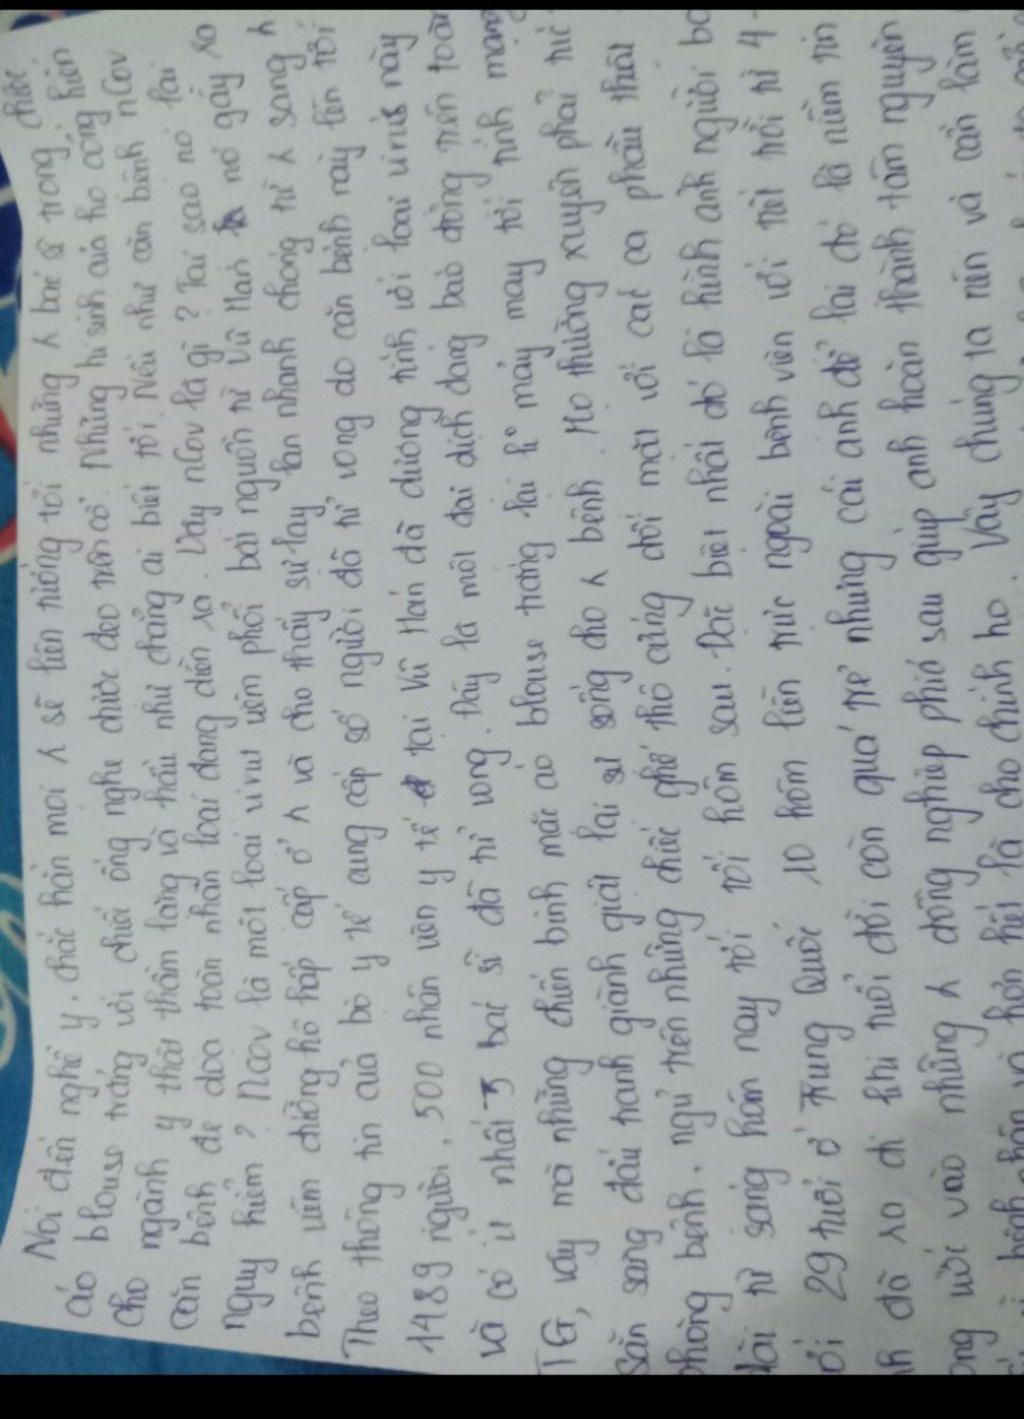 Nói đến nghề y, chắc hẳn mọi λ sẽ liên tưởng tới những λ bác sĩ trong chiếc
áo blouse trắng với chiếc ống nghe được đeo trên cổ. Những hi sinh của họ cống hiến
cho ngành y thật thầm lặng và hầu như chẳng ai biết tới. Nếu như căn bệnh nCov
căn bệnh đe doạ toàn nhân loại đang diễn ra. Vậy nCov là gì? Tại sao nó lại
nguy hiểm? Ncov là một loại virut viêm phổi bắt nguồn từ Vũ Hán nó gây ra
bệnh viêm đường hô hấp cấp ở λ và cho thấy sự lây lan nhanh chóng từ λ sang λ
Theo thông tin của bộ y tế cung cấp số người đã tử vong do căn bệnh này lên tới
1489 người, 500 nhân viên y tế tại Vũ Hán đã dương tính với loại virus này
và có ít nhất 3 bác sĩ đã tử vong. Đây là một đại dịch đáng báo động trên toàn
TG, vậy mà những chiến binh mặc áo blouse trắng lại tỉ mẩy may tới tính mạng
Sẵn sàng đấu tranh giành giật lại sự sống cho λ bệnh. Họ thường xuyên phải
phòng bệnh, ngủ trên những chiếc ghế thô cứng đối mặt với các ca phẫu thuật
dài từ sáng hôm nay tới tối hôm sau. Đặc biệt nhất đó là hình ảnh người bá
29 tuổi ở Trung Quốc 10 hôm liên trực ngoài bệnh viện với tiết trời từ 4-
đã ra đi khi tuổi đời còn quá trẻ nhưng cái anh để lại đó là niềm tin
vào những λ đồng nghiệp phía sau giúp anh hoàn thành tâm nguyện
hơn hết là cho chính họ. Vậy chúng ta nên và cần làm